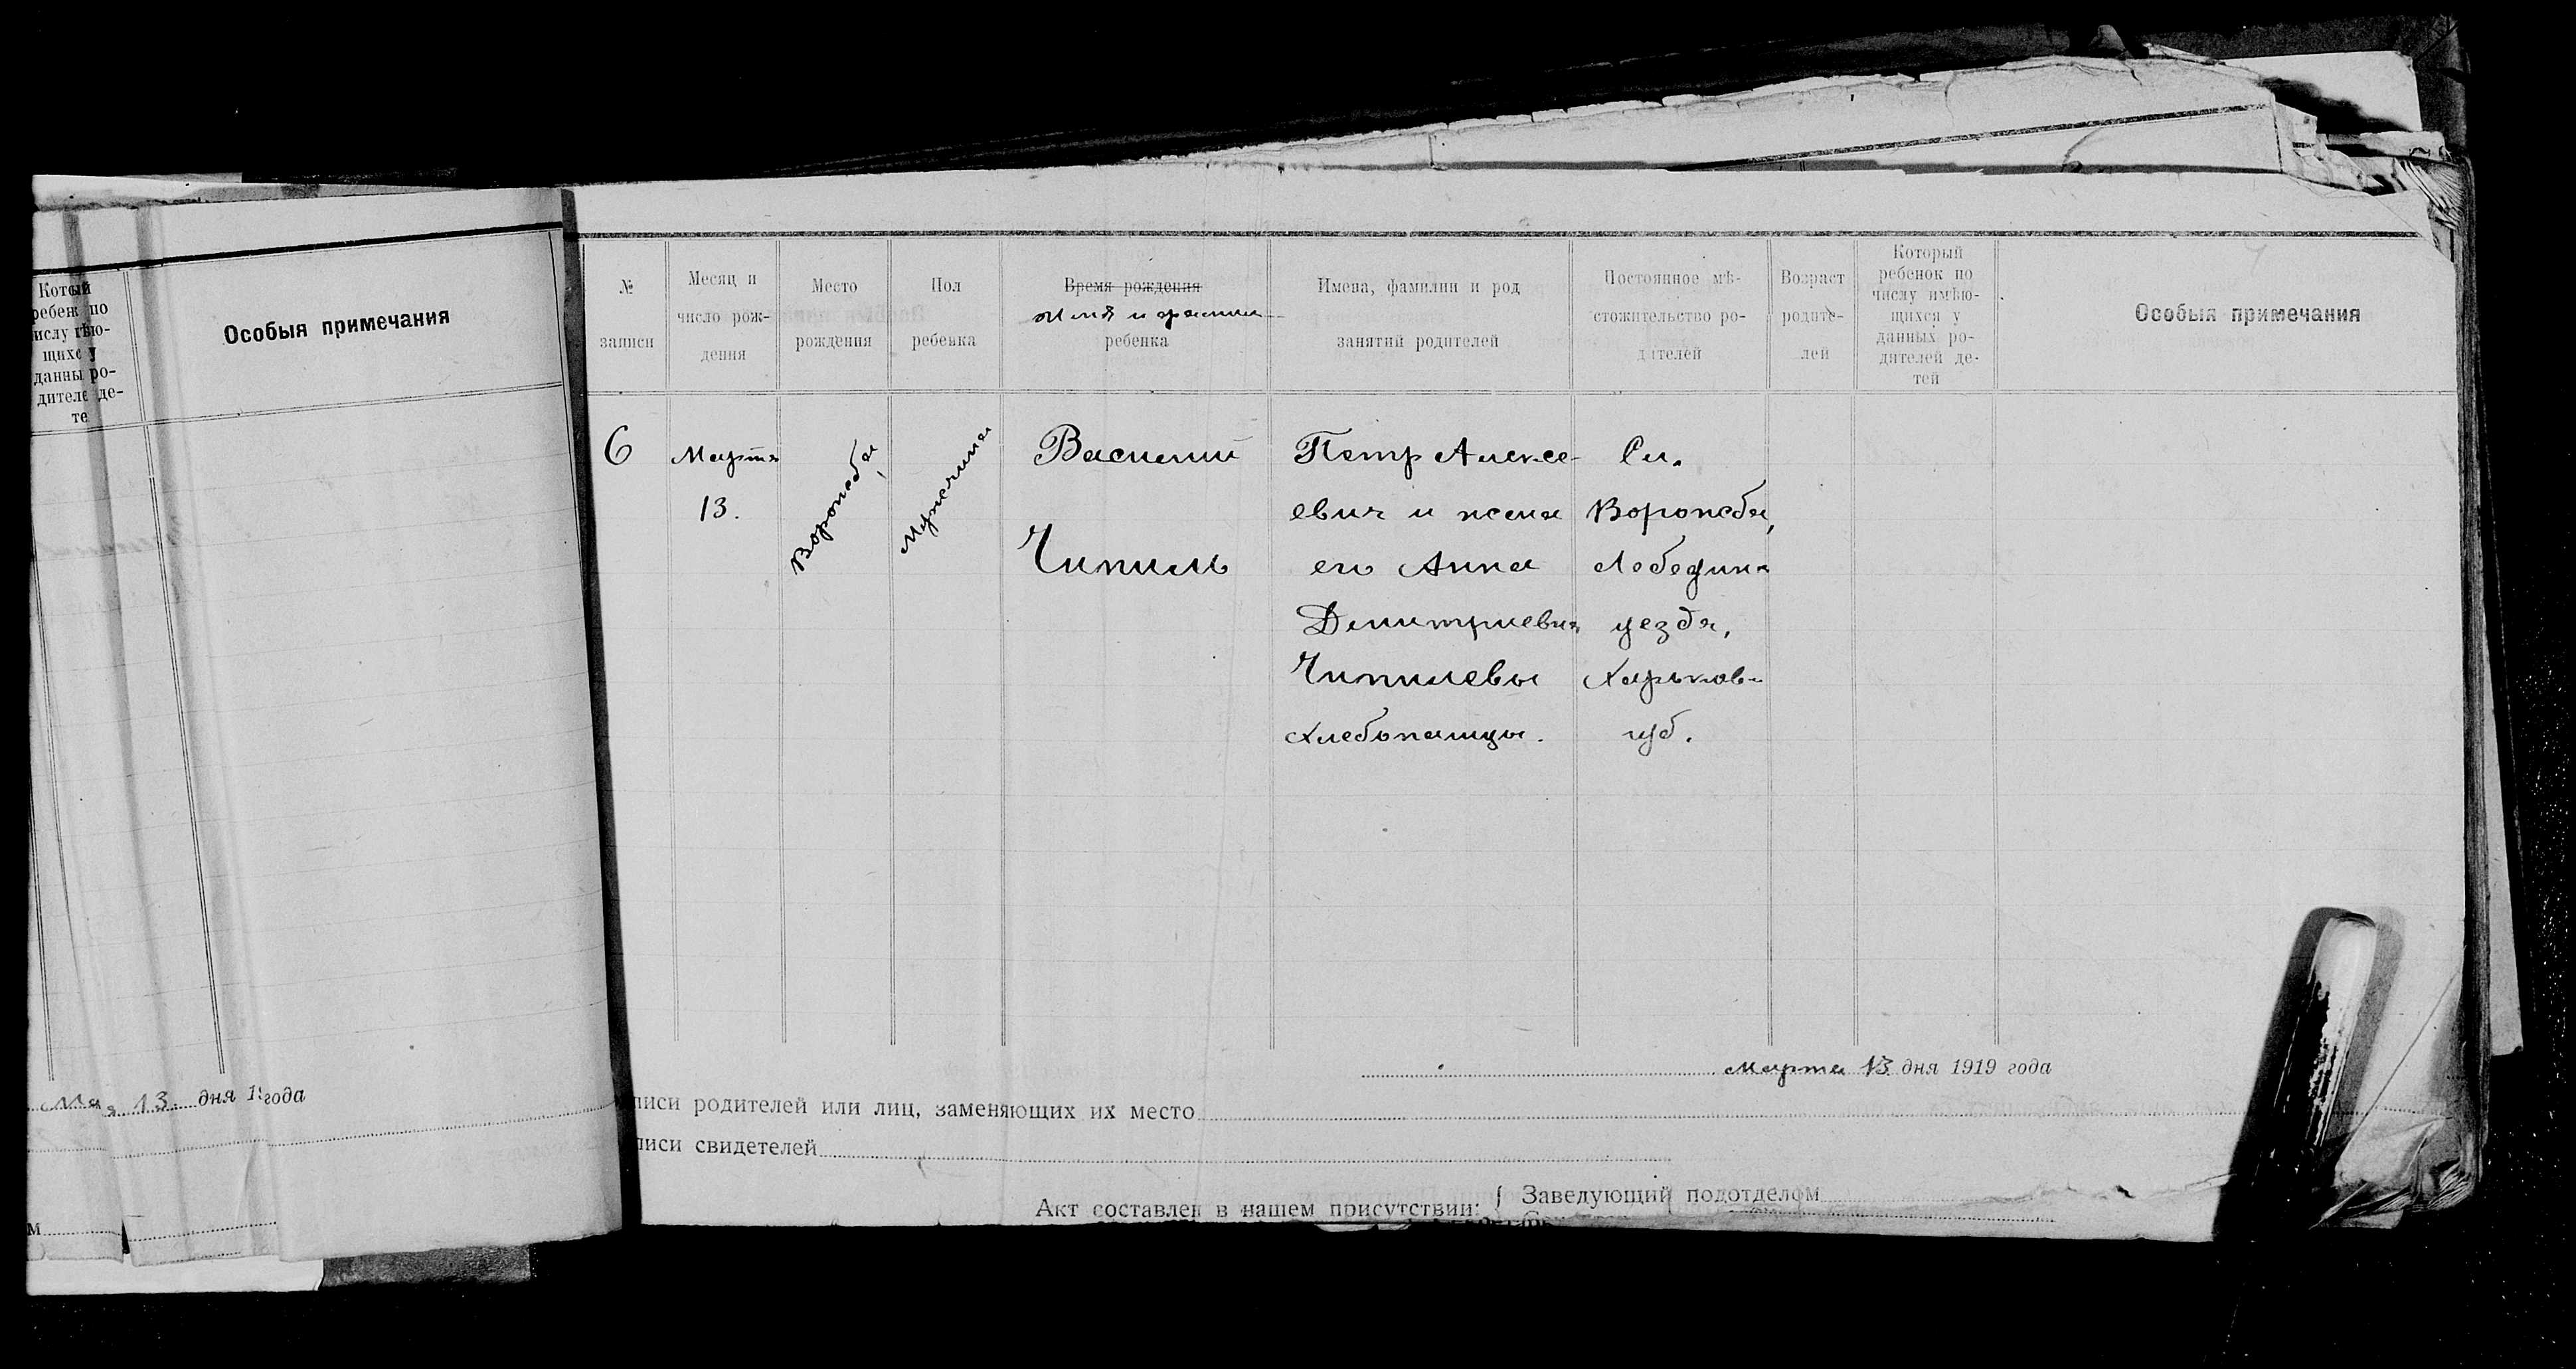 Который
ребенок по
числу имѣю-
щихся у
данных ро-
дителей де-
те
Особыя примечания
Мая 13. дня 1 года
м
№
записи
Месяц и
число рож-
дения
Место
рождения
Пол
ребенка
Время рождения
Имя и фамилия
ребенка
Имена, фамилии и род
занятий родителей
Постоянное мѣ-
стожительство ро-
дителей
Возраст
родите-
лей
Который
ребенок по
числу имѣю-
щихся у
данных ро-
дителей де-
тей
Особыя примечания
6
Марта
13.
Ворожба
Мужчина
Василий
Чипиль
Петр Алексе-
евич и жена
его Анна
Димитриевна
Чипилевы
хлебопашцы.
Сл.
Ворожба,
Лебедин-
уезда,
Харьков-
губ.
Марта 13 дня 1919 года
писи родителей или лиц, заменяющих их место
писи свидетелей
Акт составлен в нашем присутствии: { Заведующий подотделом